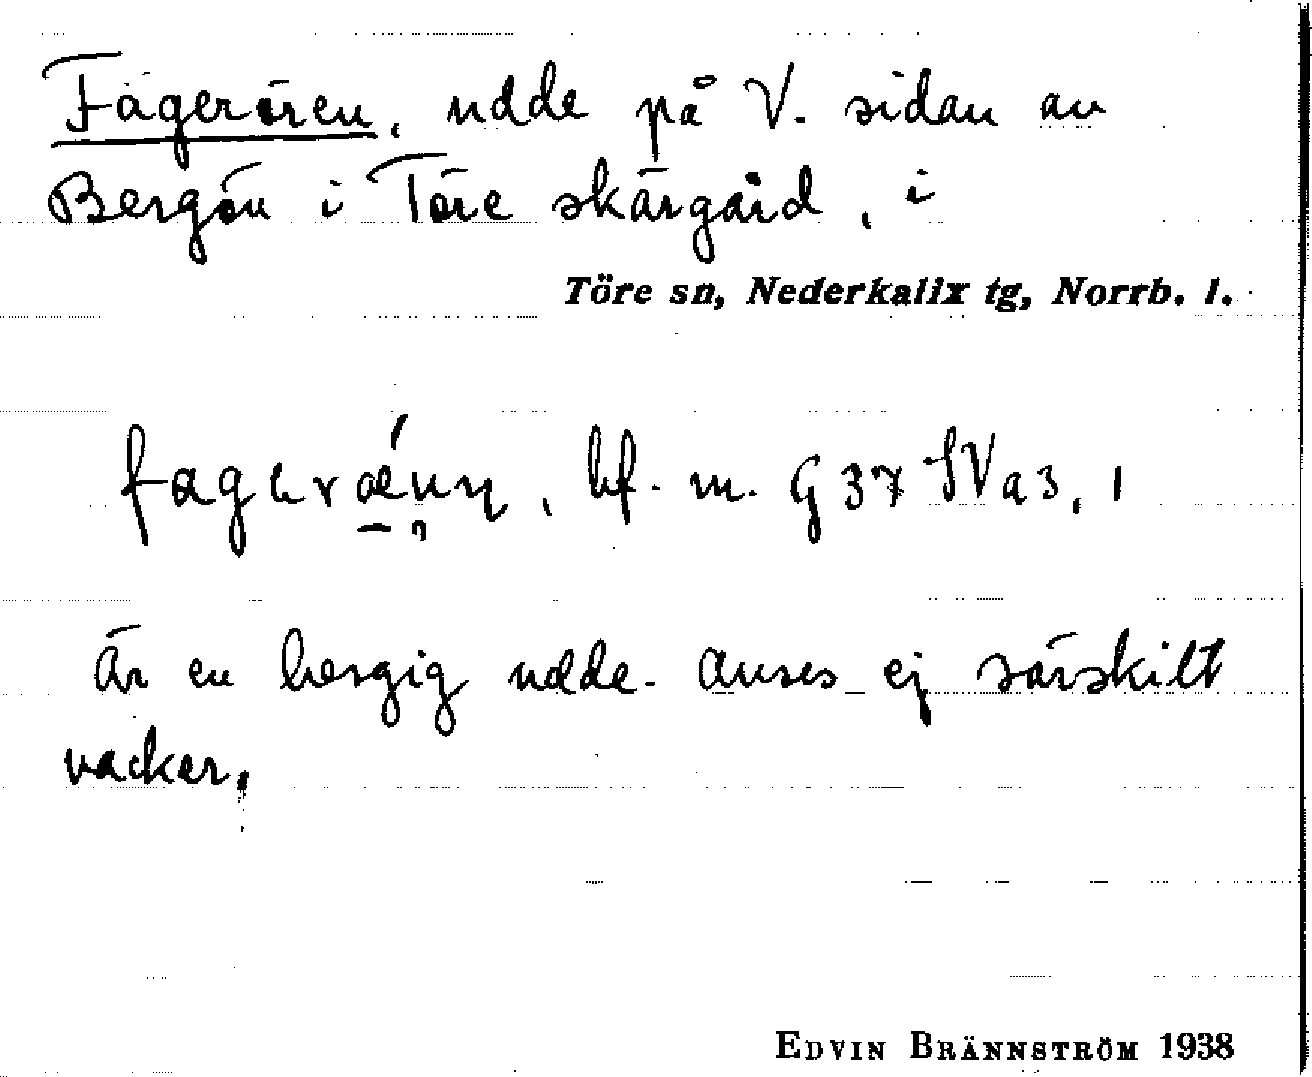 Fagerören, udde på V. sidan av
Bergön i Töre skärgård, i
Töre sn, Nederkalix tg, Norrb. l.
bf. m. G 37 SV a 3, 1
Är en bergig udde. Anses ej särskilt
vacker.
EDVIN BRÄNNSTRÖM 1938